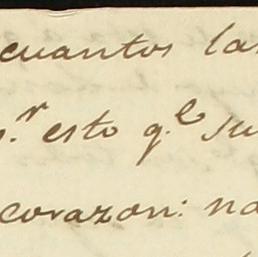 cuantos la
s.r esto q.e su
corazon: no